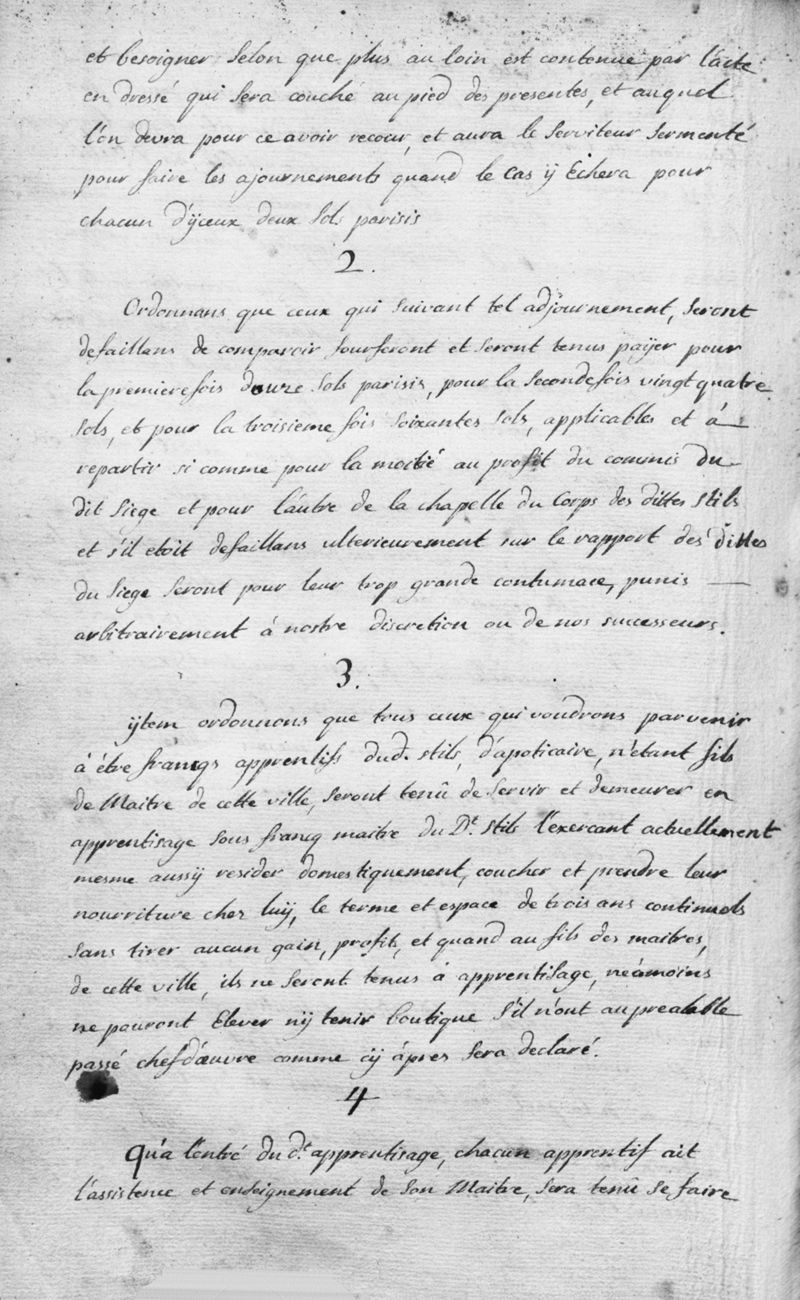 et besoigner selon que plus au loin est contenue par l'acte
en dressé qui sera couché au pied des presentes, et auquel
l'on devra pour ce avoir recour, et aura le serviteur sermenté
pour faire les ajournements quand le cas ÿ Echera pour
chacun d'ÿceux deux sols parisis
2.
Ordonnans que ceux qui suivant tel adjournement, seront
defaillans de comparoir fourferont et seront tenus païer pour
la premiere fois douze sols parisis, pour la seconde fois vingt quatre
sols, et pour la troisieme fois soixantes sols, applicables et á
repartir si comme pour la moitié au profit du commis du
dit siege et pour l'autre de la chapelle du Corps des dittes stils
et s'il etoit defaillans ulterieurement sur le rapport des dittes
du siege seront pour leur trop grande contumace, punis
arbitrairement á nostre discretion ou de nos successeurs.
3.
ÿtem ordonnons que tous ceux qui voudrons parvenir
á être francqs apprentifs dud. stils, d'apoticaire, n'etant fils
de Maitre de cette ville, seront tenû de servir et demeurer en
apprentisage sous francq maitre du Dt. stils l'exercant actuellement
mesme aussÿ resider domestiquement, coucher et prendre leur
nourriture chez luÿ, le terme et espace de trois ans continuels
sans tirer aucun gain, profit, et quand au fils des maitres,
de cette ville, ils ne seront tenus á apprentisage, neámoins
ne pouront Elever nÿ tenir boutique s'il n'out au prealable
passé chef d'œuvre comme cÿ ápres sera declaré.
4
Qu'a l'entré du dt. apprentisage, chacun apprentif ait
l'assistence et enseignement de son Maitre, sera tenû se faire